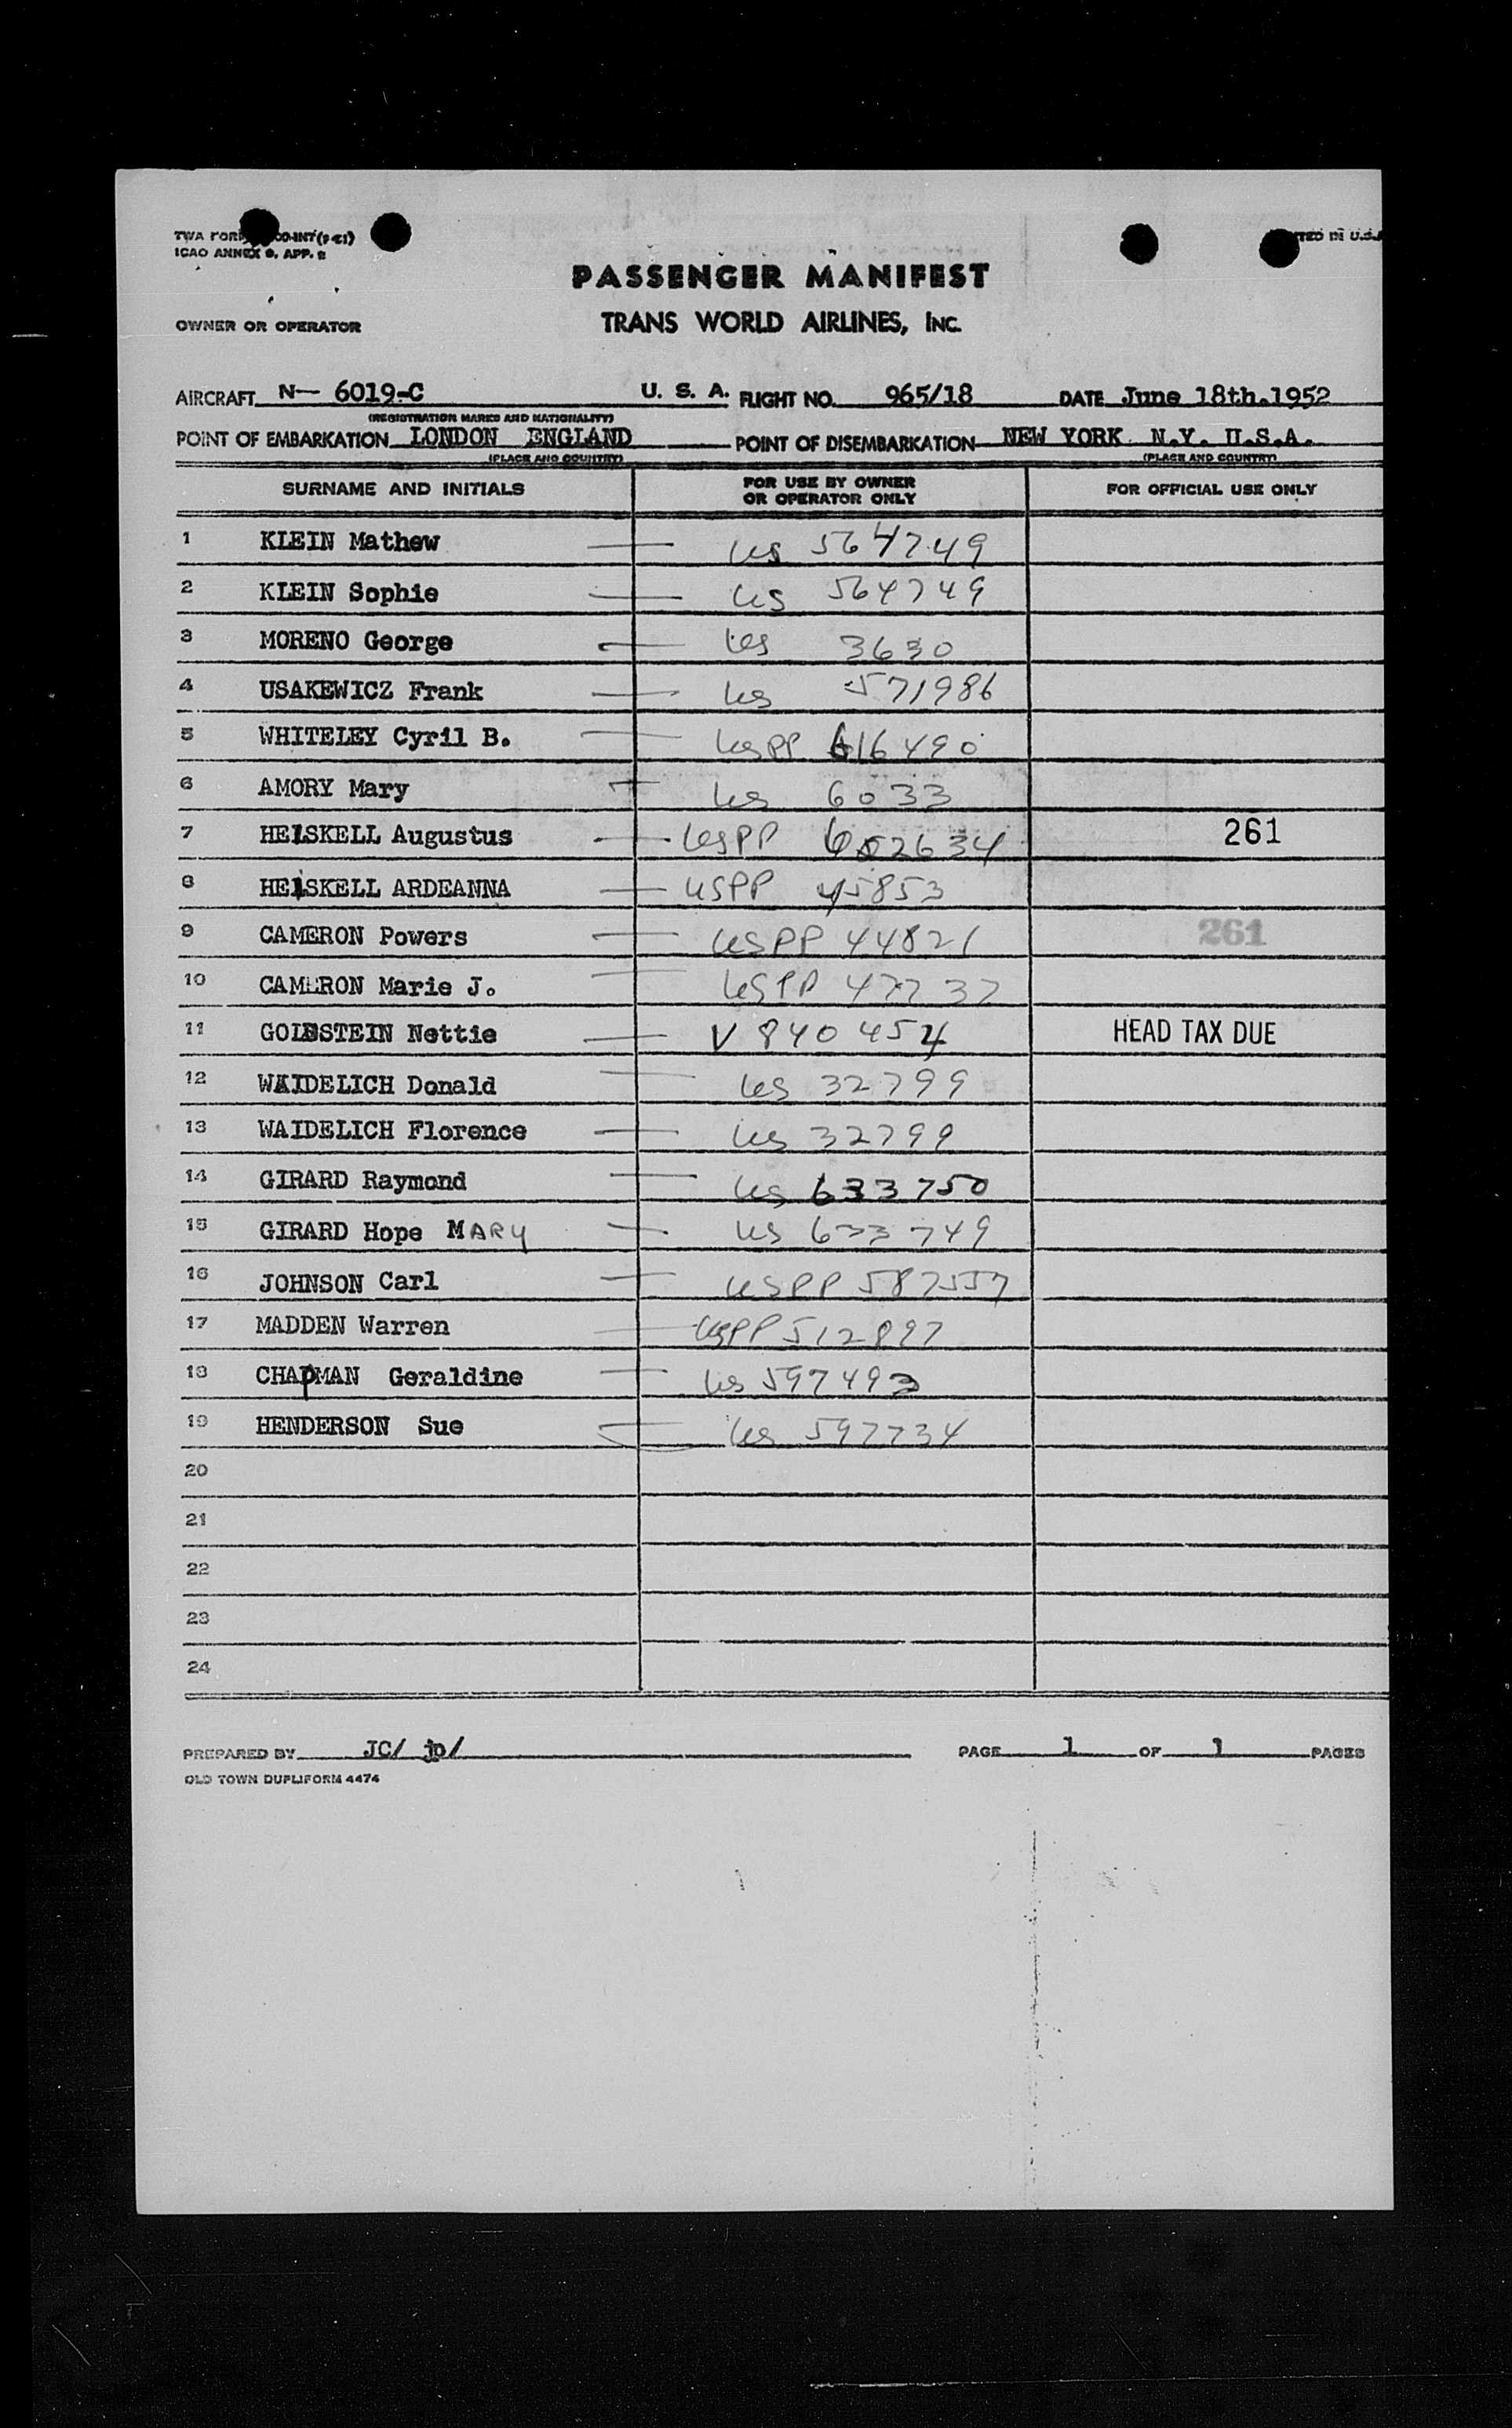 TWA FORM
ICAO ANNEX 9, APP. 2
PRINTED IN U.S.A
PASSENGER MANIFEST
OWNER OR OPERATOR TRANS WORLD AIRLINES, INC.
AIRCRAFT N— 6019-C U. S. A. FLIGHT NO. 965/18 DATE June 18th.1952
(REGISTRATION MARKS AND NATIONALITY)
POINT OF EMBARKATION LONDON ENGLAND POINT OF DISEMBARKATION NEW YORK N.Y. U.S.A.
(PLACE AND COUNTRY) (PLACE AND COUNTRY)
SURNAME AND INITIALS FOR USE BY OWNER OR OPERATOR ONLY FOR OFFICIAL USE ONLY
1 KLEIN Mathew — US 564749
2 KLEIN Sophie — US 564749
3 MORENO George — US 3630
4 USAKEWICZ Frank — US 571986
5 WHITELEY Cyril B. — USPP 616490
6 AMORY Mary — US 6033
7 HEISKELL Augustus — USPP 652634 261
8 HEISKELL ARDEANNA — USPP 45853
9 CAMERON Powers — USPP 44821 261
10 CAMERON Marie J. — USPP 47737
11 GOLDSTEIN Nettie — V 840454 HEAD TAX DUE
12 WAIDELICH Donald — US 32799
13 WAIDELICH Florence — US 32799
14 GIRARD Raymond — US 633750
15 GIRARD Hope MARY — US 633749
16 JOHNSON Carl — USPP 587557
17 MADDEN Warren — USPP 512897
18 CHAPMAN Geraldine — US 597493
19 HENDERSON Sue — US 597734
20
21
22
23
24
PREPARED BY JC/ jp/ PAGE 1 OF 1 PAGES
OLD TOWN DUPLIFORM 4474